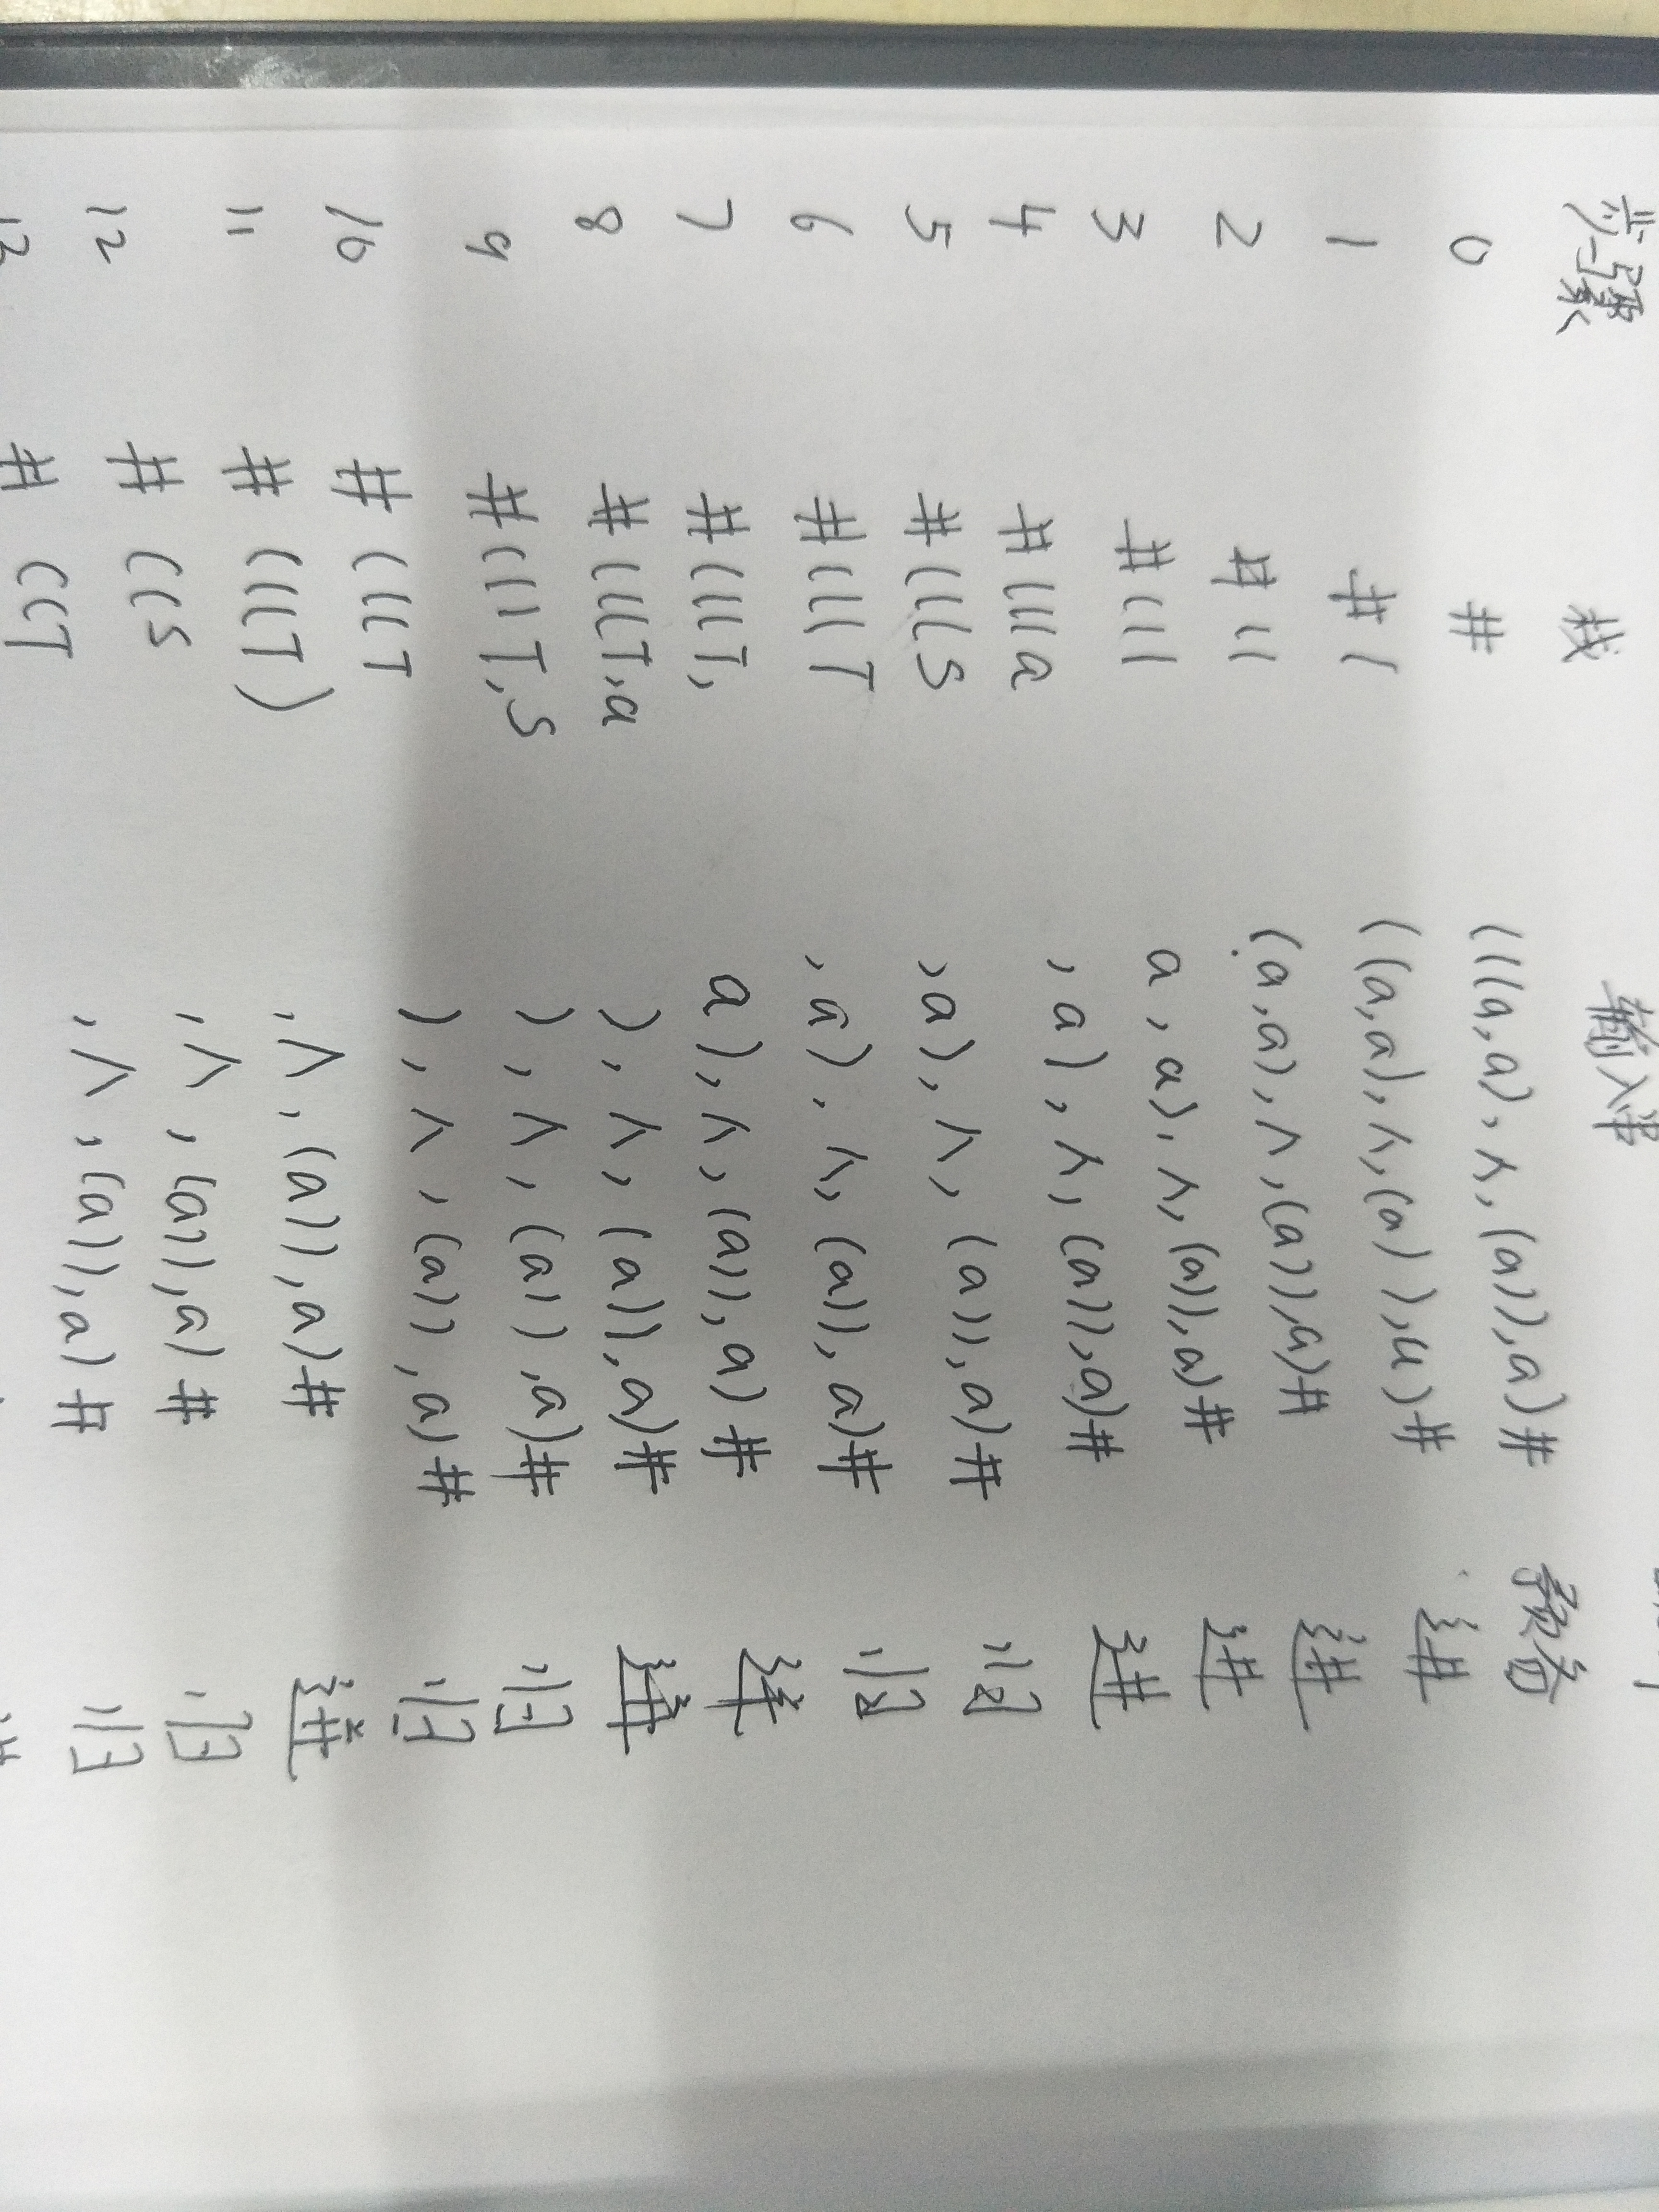 步骤 栈 输入串
0 # (((a,a),∧,(a)),a)# 预备
1 #( ((a,a),∧,(a)),a)# 进
2 #(( (a,a),∧,(a)),a)# 进
3 #((( a,a),∧,(a)),a)# 进
4 #(((a ,a),∧,(a)),a)# 进
5 #(((S ,a),∧,(a)),a)# 归
6 #(((T ,a),∧,(a)),a)# 归
7 #(((T, a),∧,(a)),a)# 进
8 #(((T,a ),∧,(a)),a)# 进
9 #(((T,S ),∧,(a)),a)# 归
10 #(((T ),∧,(a)),a)# 归
11 #(((T) ,∧,(a)),a)# 进
12 #((S ,∧,(a)),a)# 归
13 #((T ,∧,(a)),a)# 归